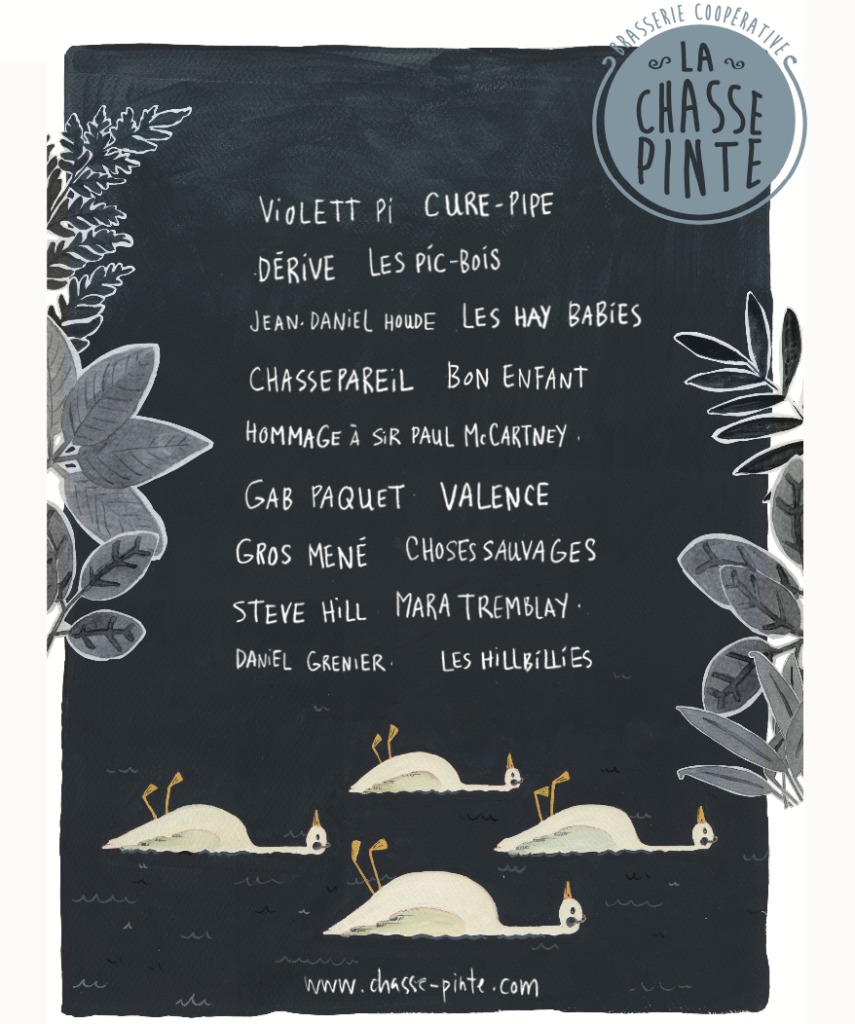 BRASSERIE COOPÉRATIVE
LA
CHASSE
PINTE
ViOLETT Pi CURE-PIPE
DÉRiVE LES PiC-BOiS
JEAN-DANiEL HOUDE LES HAY BABiES
CHASSEPAREiL BON ENFANT
HOMMAGE À SiR PAUL McCARTNEY.
GAB PAQUET VALENCE
GROS MENÉ CHOSES SAUVAGES
STEVE HiLL MARA TREMBLAY.
DANiEL GRENiER. LES HiLLBiLLiES
www.chasse-pinte.com